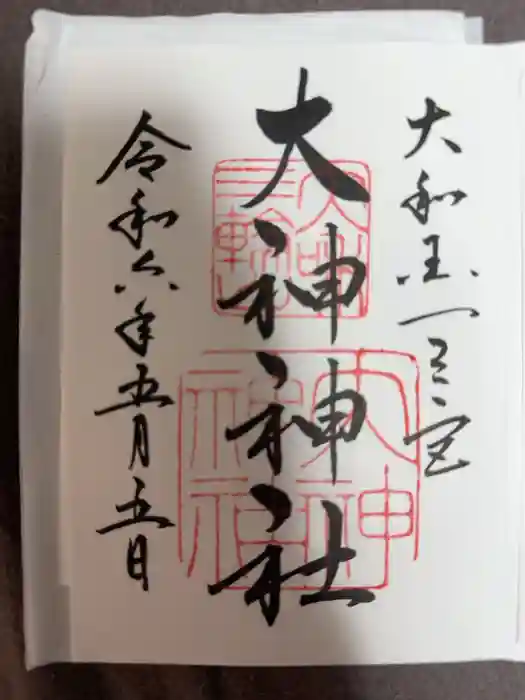 大和国一之宮
大神神社
令和六年五月五日
三輪
大神神社